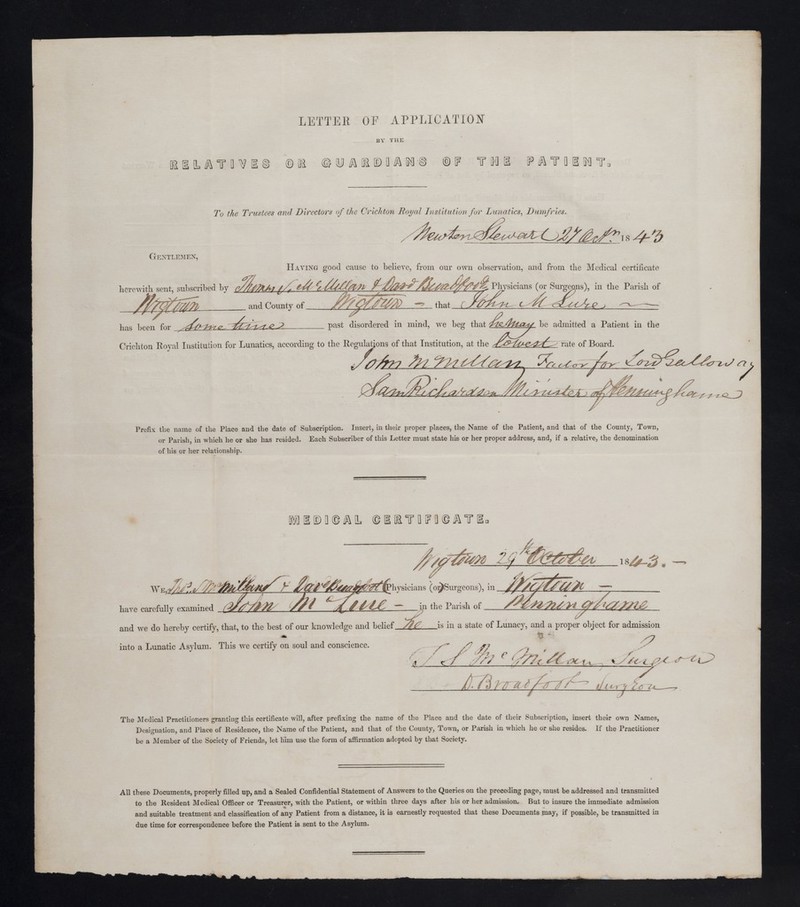 LETTER OF APPLICATION
BY THE
RELATIVES OR GUARDIANS OF THE PATIENT.
To the Trustees and Directors of the Crichton Royal Institution for Lunatics, Dumfries.
Newton Stewart 27 Octr. 1843
GENTLEMEN,
HAVING good cause to believe, from our own observation, and from the Medical certificate
herewith sent, subscribed by Thomas S. McMillan & David Broadfoot Physicians (or Surgeons), in the Parish of
Wigtown and County of Wigtown – that John M Lure
has been for some time past disordered in mind, we beg that he may be admitted a Patient in the
Crichton Royal Institution for Lunatics, according to the Regulations of that Institution, at the lowest rate of Board.
John McMillan, Factor for Lord Galloway
Sam Richardson Minister of Penninghame
Prefix the name of the Place and the date of Subscription. Insert, in their proper places, the Name of the Patient, and that of the County, Town,
or Parish, in which he or she has resided. Each Subscriber of this Letter must state his or her proper address, and, if a relative, the denomination
of his or her relationship.
MEDICAL CERTIFICATE.
Wigtown 29th October 1843. –
WE, Thos. S McMillan & David Broadfoot (Physicians (or) Surgeons), in Wigtown –
have carefully examined John Mc Lure – in the Parish of Penninghame
and we do hereby certify, that, to the best of our knowledge and belief he is in a state of Lunacy, and a proper object for admission
into a Lunatic Asylum. This we certify on soul and conscience.
T S McMillan, Surgeon
D. Broadfoot Surgeon
The Medical Practitioners granting this certificate will, after prefixing the name of the Place and the date of their Subscription, insert their own Names,
Designation, and Place of Residence, the Name of the Patient, and that of the County, Town, or Parish in which he or she resides. If the Practitioner
be a Member of the Society of Friends, let him use the form of affirmation adopted by that Society.
All these Documents, properly filled up, and a Sealed Confidential Statement of Answers to the Queries on the preceding page, must be addressed and transmitted
to the Resident Medical Officer or Treasurer, with the Patient, or within three days after his or her admission. But to insure the immediate admission
and suitable treatment and classification of any Patient from a distance, it is earnestly requested that these Documents may, if possible, be transmitted in
due time for correspondence before the Patient is sent to the Asylum.